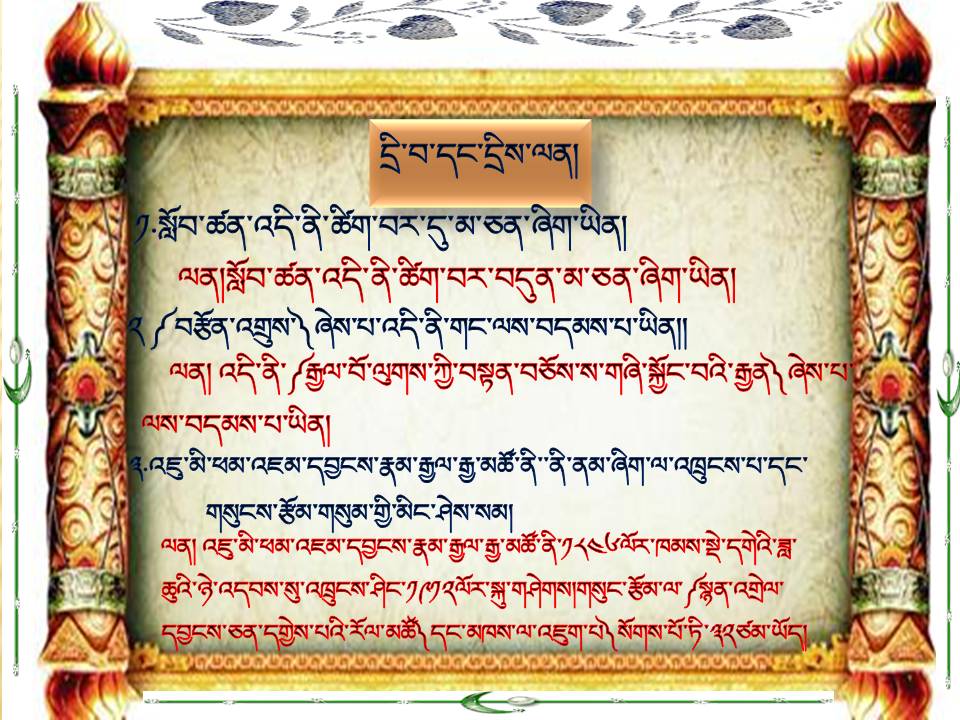 དྲི་བ་དང་དྲིས་ལན།
༡.སློབ་ཚན་འདི་ནི་ཚིག་བར་དུ་མ་ཅན་ཞིག་ཡིན།
ལན།སློབ་ཚན་འདི་ནི་ཚིག་བར་བདུན་མ་ཅན་ཞིག་ཡིན།
༢ ༼བརྩོན་འགྲུས༽ ཞེས་པ་འདི་ནི་གང་ལས་བདམས་པ་ཡིན།།
ལན། འདི་ནི་༼རྒྱལ་བོ་ལུགས་ཀྱི་བསྟན་བཅོས་ས་གཞི་སྐྱོང་བའི་རྒྱན༽ ཞེས་པ་
ལས་བདམས་པ་ཡིན།
༣.འཇུ་མི་ཕམ་འཇམ་དབྱངས་རྣམ་རྒྱལ་རྒྱ་མཚོ་ནི་་ནི་ནམ་ཞིག་ལ་འཁྲུངས་པ་དང་
གསུངས་རྩོམ་གསུམ་གྱི་མིང་ཤེས་སམ།
ལན། འཇུ་མི་ཕམ་འཇམ་དབྱངས་རྣམ་རྒྱལ་རྒྱ་མཚོ་ནི་༡༨༤༦ལོར་ཁམས་སྡེ་དགེའི་ཟླ་
ཆུའི་ཉེ་འདབས་སུ་འཁྲུངས་ཤིང་༡༩༡༢ལོར་སྐུ་གཤེགས།གསུང་རྩོམ་ལ་༼སྙན་འགྲེལ་
དབྱངས་ཅན་དགྱེས་པའི་རོལ་མཚོ༽ དང་མཁས་ལ་འཇུག་པ༽ སོགས་པོ་ཏི་༣༢ཙམ་ཡོད།